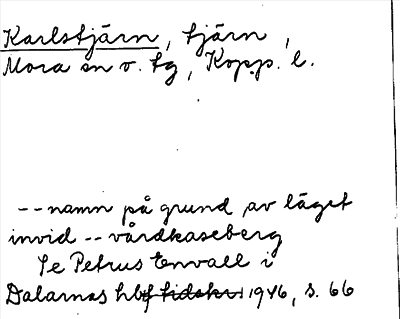 Karlstjärn, tjärn,
Mora sn v. tg, Kopp. l.
-- namn på grund av läget
invid -- vårdkaseberg
Se Petrus Envall i
Dalarnas hbf tidskr. 1946, s. 66